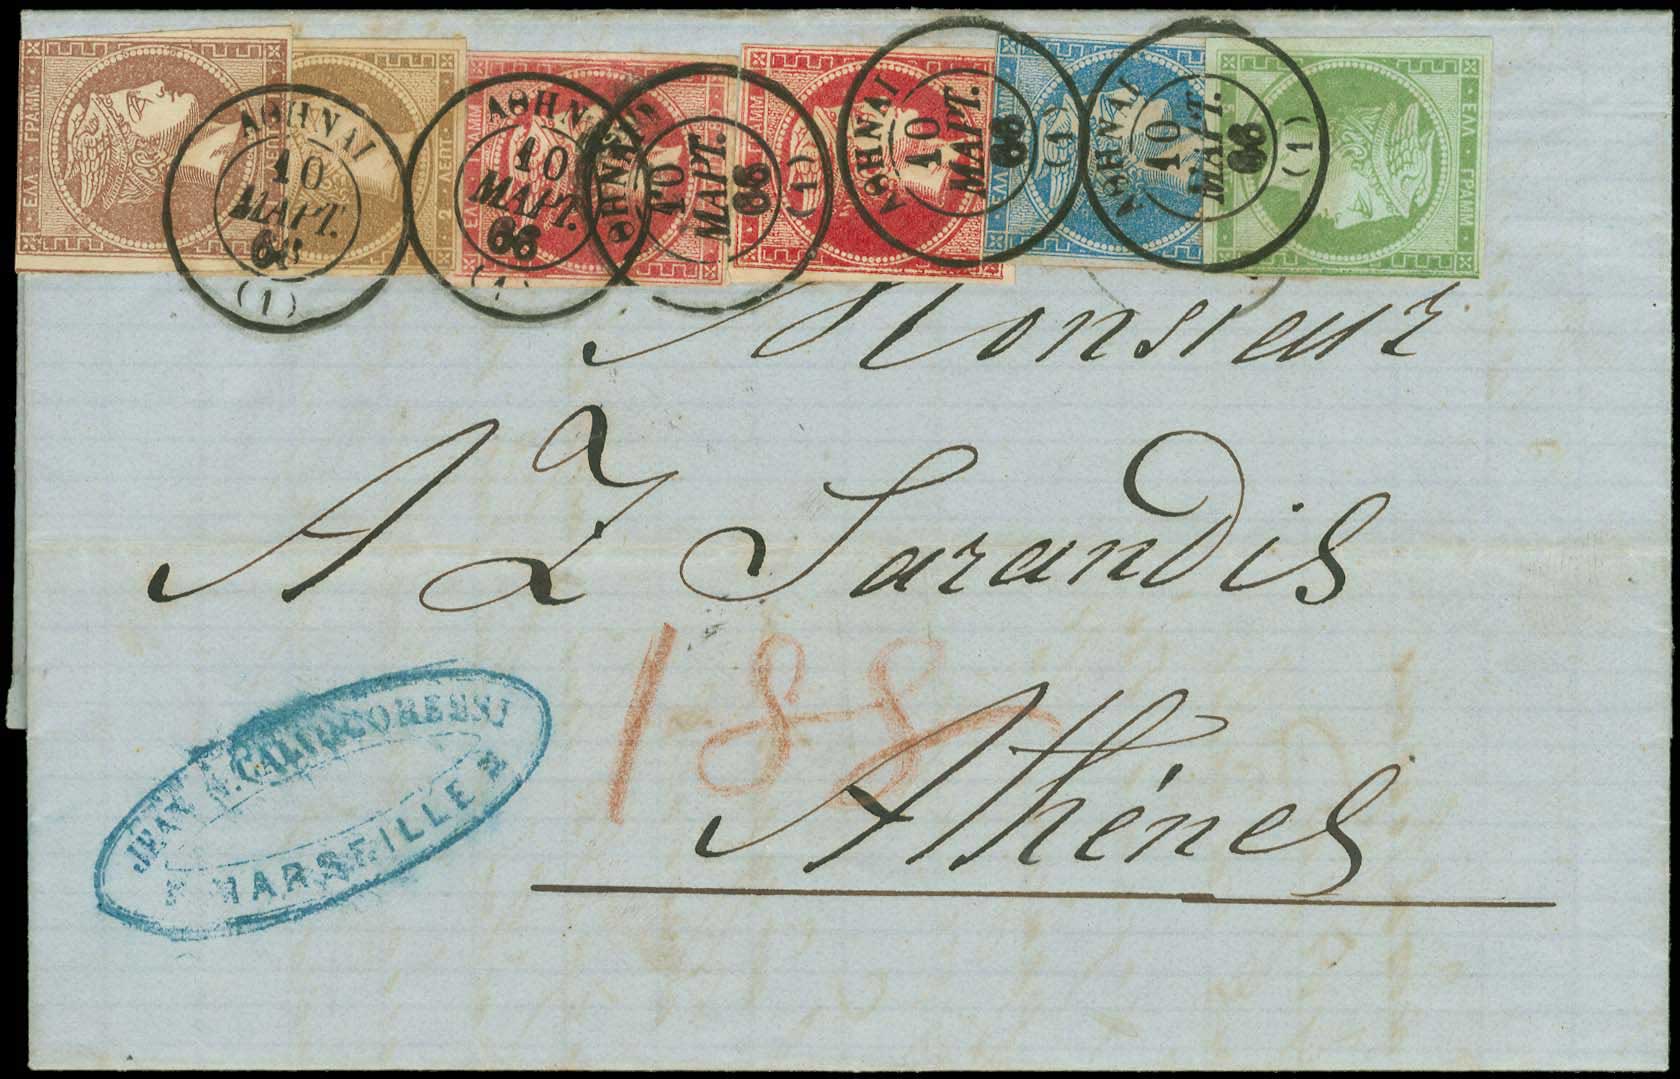 ΕΛΛ · ΓΡΑΜΜ ·
2 · ΛΕΠΤ
ΕΛΛ · ΓΡΑΜΜ
ΑΘΗΝΑΙ
10
ΜΑΡΤ.
68
(1)
ΑΘΗΝΑΙ
10
ΜΑΡΤ.
68
(1)
ΑΘΗΝΑΙ
10
ΜΑΡΤ.
68
(1)
ΑΘΗΝΑΙ
10
ΜΑΡΤ.
68
(1)
ΑΘΗΝΑΙ
10
ΜΑΡΤ.
68
(1)
Monsieur
A Z Sarandis
188
Athènes
JEAN N. CALVOCORESSI
MARSEILLE